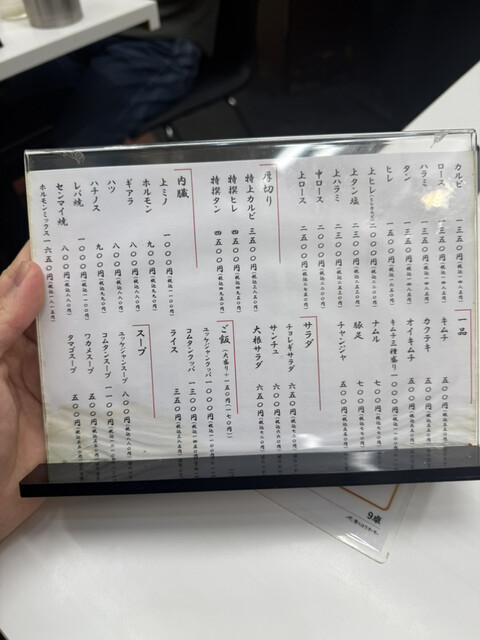 カルビ 一三五〇円(税込一四八五円)
ロース 一三五〇円(税込一四八五円)
ハラミ 一三五〇円(税込一四八五円)
タン 一三五〇円(税込一四八五円)
ヒレ 一五〇〇円(税込一六五〇円)
上ヒレ 二〇〇〇円(税込二二〇〇円)
上タン塩 二三〇〇円(税込二五三〇円)
上ハラミ 二三〇〇円(税込二五三〇円)
中ロース 二〇〇〇円(税込二二〇〇円)
上ロース 二五〇〇円(税込二七五〇円)
厚切り
特上カルビ 三五〇〇円(税込三八五〇円)
特撰ヒレ 四五〇〇円(税込四九五〇円)
特撰タン 四五〇〇円(税込四九五〇円)
内臓
上ミノ 一〇〇〇円(税込一一〇〇円)
ホルモン 九〇〇円(税込九九〇円)
ギアラ 八〇〇円(税込八八〇円)
ハツ 八〇〇円(税込八八〇円)
ハチノス 九〇〇円(税込九九〇円)
レバ焼 一〇〇〇円(税込一一〇〇円)
センマイ焼 八〇〇円(税込八八〇円)
ホルモンミックス 一六五〇円
一品
キムチ 五〇〇円
カクテキ 五〇〇円
オイキムチ 五〇〇円
キムチ三種盛り 一〇〇〇円
ナムル 七〇〇円
豚足 七〇〇円
チャンジャ 五〇〇円
サラダ
チョレギサラダ 六五〇円
サンチュ 六〇〇円
大根サラダ 六五〇円
ご飯(大盛り+一五〇円(一七〇円)
ユッケジャンクッパ 一〇〇〇円
コムタンクッパ 一三〇〇円
ライス 三五〇円
スープ
ユッケジャンスープ 八〇〇円(税込八八〇円)
コムタンスープ 一一〇〇円
ワカメスープ 五〇〇円
タマゴスープ 五〇〇円
9卓